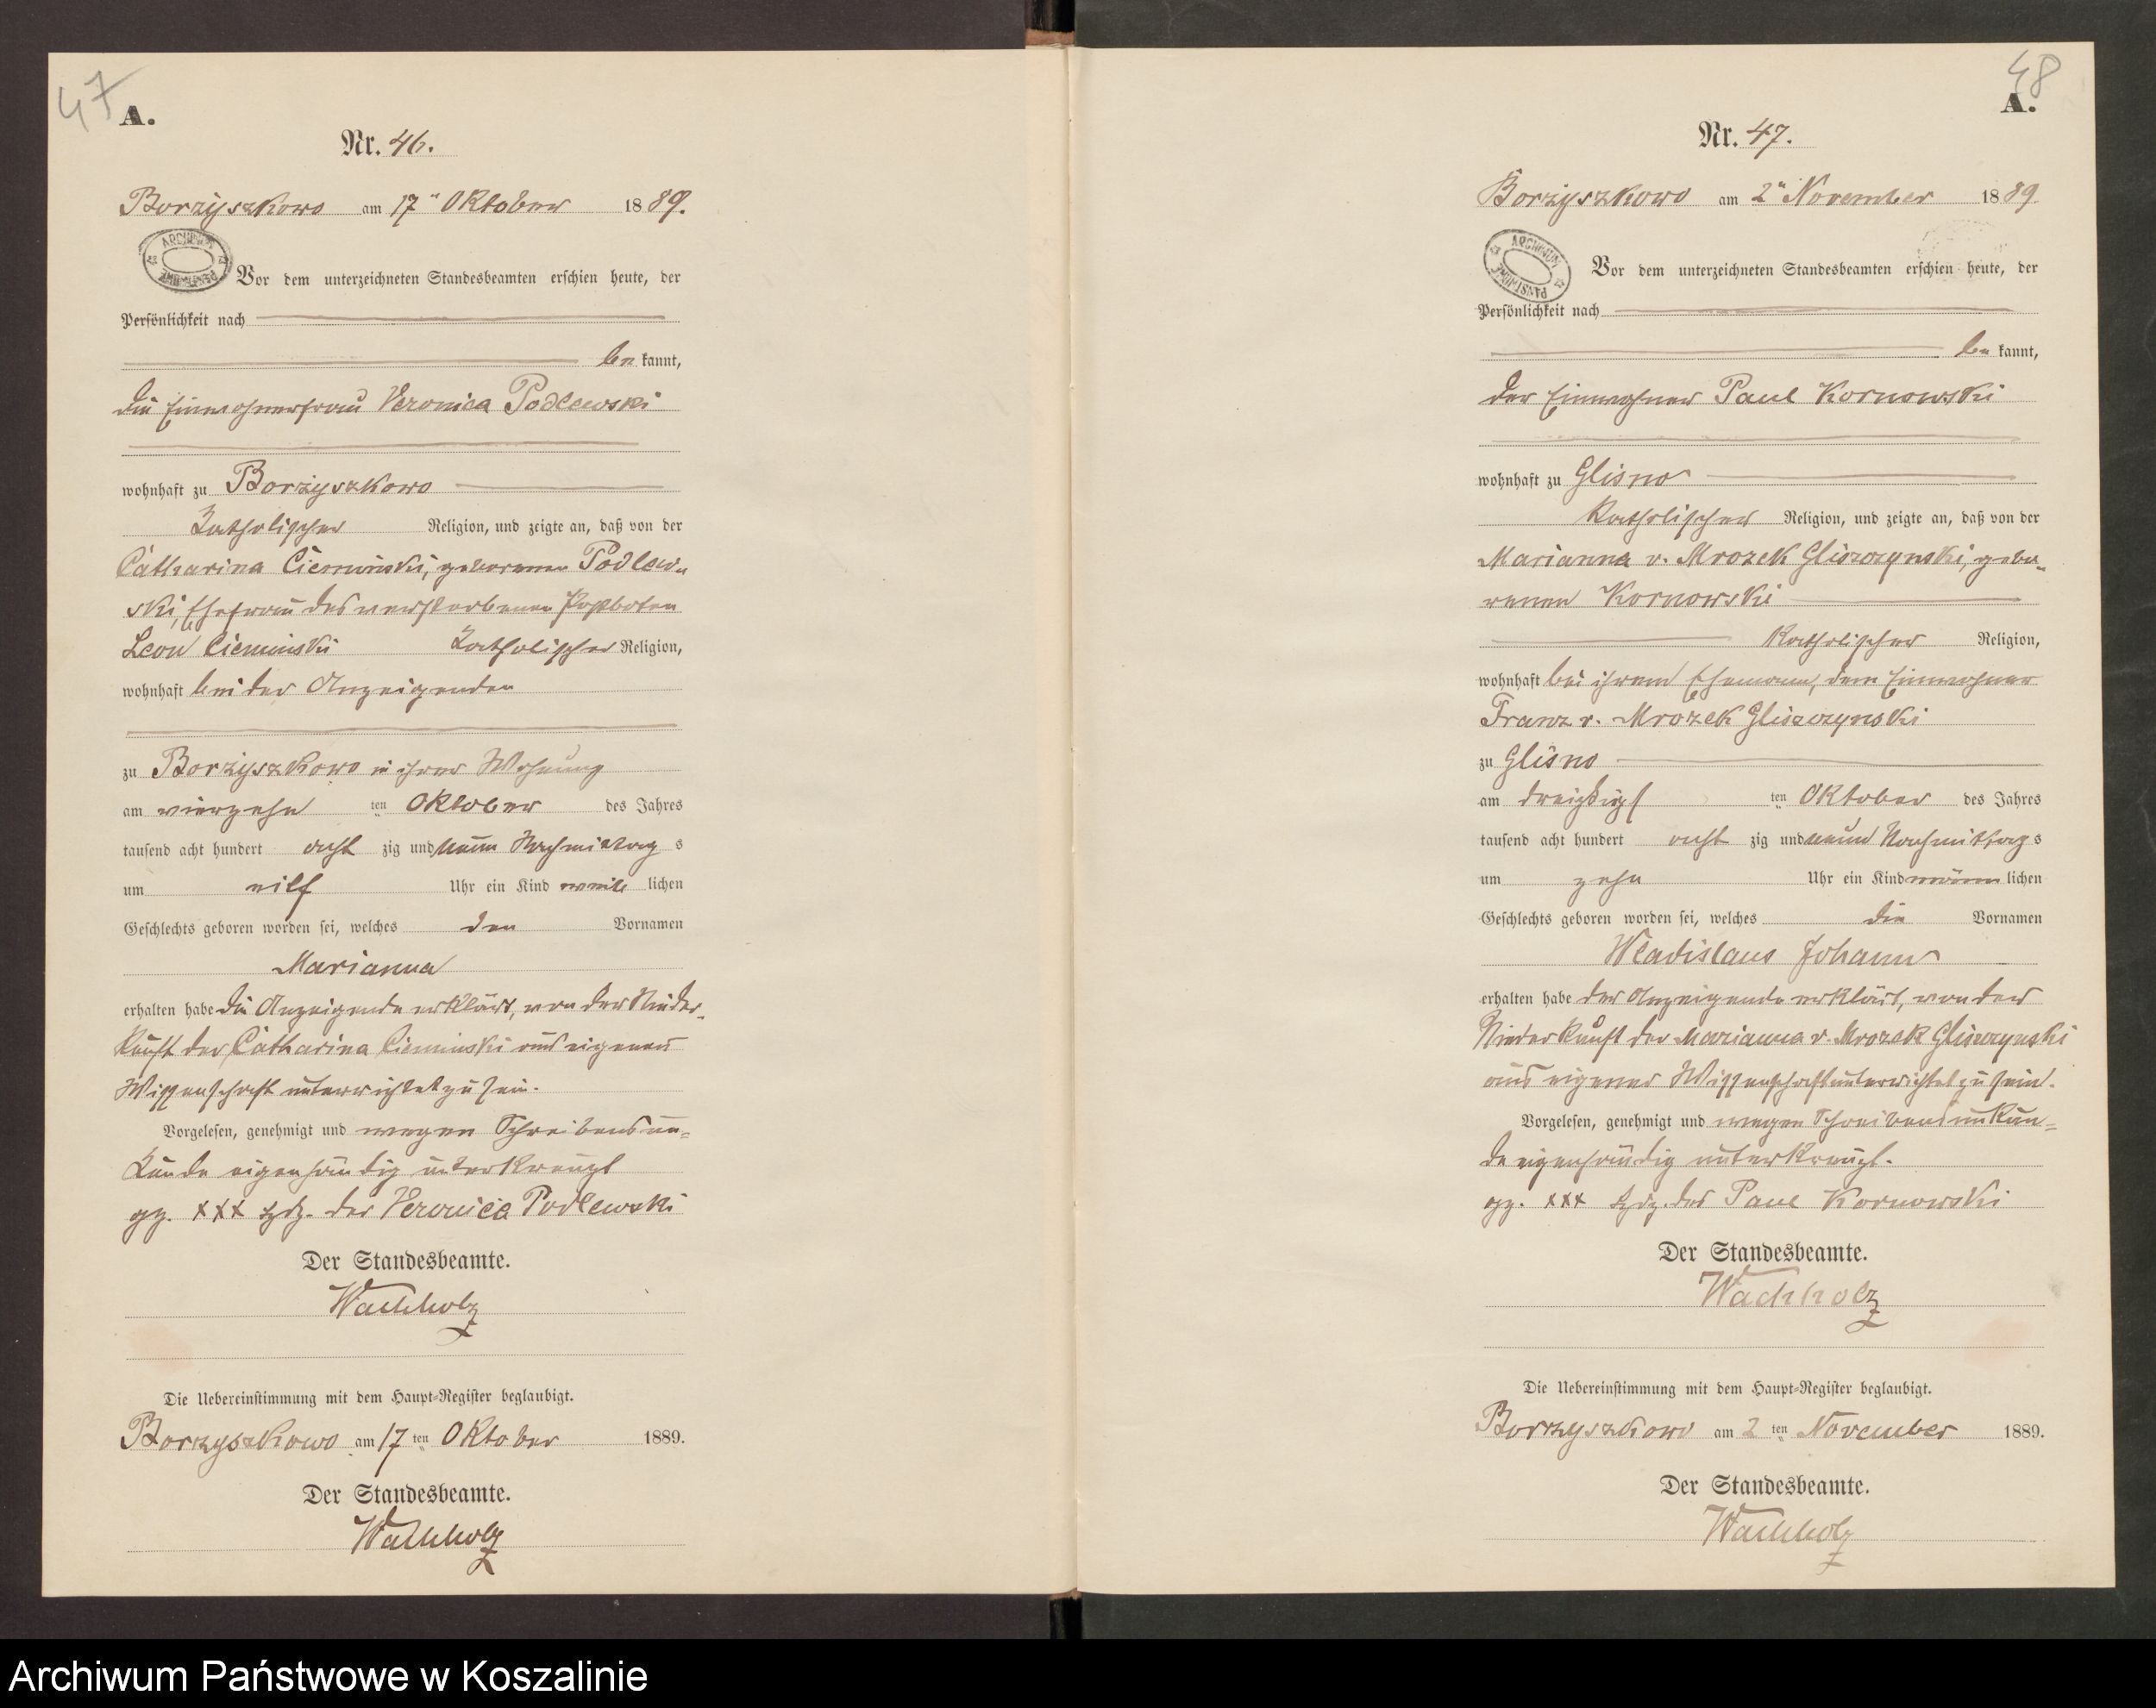 47
A.
Nr. 46.
Borzyszkowo am 17ten Oktober 1889.
Vor dem unterzeichneten Standesbeamten erschien heute, der
Persönlichkeit nach
bekannt,
die Einwohnerfrau Veronica Podlewski
wohnhaft zu Borzyszkowo
katholischer Religion, und zeigte an, daß von der
Catharina Ciemiński, geborenen Podlew-
ski, Ehefrau des verstorbenen Postboten
Leon Cieminski katholischer Religion,
wohnhaft bei der Anzeigenden
zu Borzyszkowo in ihrer Wohnung
am vierzehn ten Oktober des Jahres
tausend acht hundert acht zig und neun Nachmittags
um eilf Uhr ein Kind weiblichen
Geschlechts geboren worden sei, welches den Vornamen
Marianna
erhalten habe die Anzeigende erklärt, von der Nieder-
kunft der Catharina Cieminski aus eigener
Wissenschaft unterrichtet zu sein.
Vorgelesen, genehmigt und wegen Schreibensun=
kunde eigenhändig unterkreuzt
gg. XXX Hdz. der Veronica Podlewski
Der Standesbeamte.
Wachholz
Die Uebereinstimmung mit dem Haupt=Register beglaubigt.
Borzyszkowo am 17ten Oktober 1889.
Der Standesbeamte.
Wachholz
48
A.
Nr. 47.
Borzyszkowo am 2ten November 1889
Vor dem unterzeichneten Standesbeamten erschien heute, der
Persönlichkeit nach
bekannt,
der Einwohner Paul Kornowski
wohnhaft zu Glisno
katholischer Religion, und zeigte an, daß von der
Marianna v. Mrozek Gliszczynski, gebo-
renen Kornowski
katholischer Religion,
wohnhaft bei ihrem Ehemann, dem Einwohner
Franz v. Mrozek Gliszczynski
zu Glisno
am dreizigst ten Oktober des Jahres
tausend acht hundert acht zig und neun Nachmittags
um zehn Uhr ein Kind männlichen
Geschlechts geboren worden sei, welches die Vornamen
Wladislaus Johann
erhalten habe der Anzeigende erklärt, von der
Niederkunft der Marianna v. Mrozek Gliszczynski
aus eigener Wissenschaft unterrichtet zu sein.
Vorgelesen, genehmigt und wegen Schreibensunkun=
de eigenhändig unterkreuzt.
gg. XXX Hdz. des Paul Kornowski
Der Standesbeamte.
Wachholz
Die Uebereinstimmung mit dem Haupt=Register beglaubigt.
Borzyszkowo am 2ten November 1889.
Der Standesbeamte.
Wachholz
Archiwum Państwowe w Koszalinie